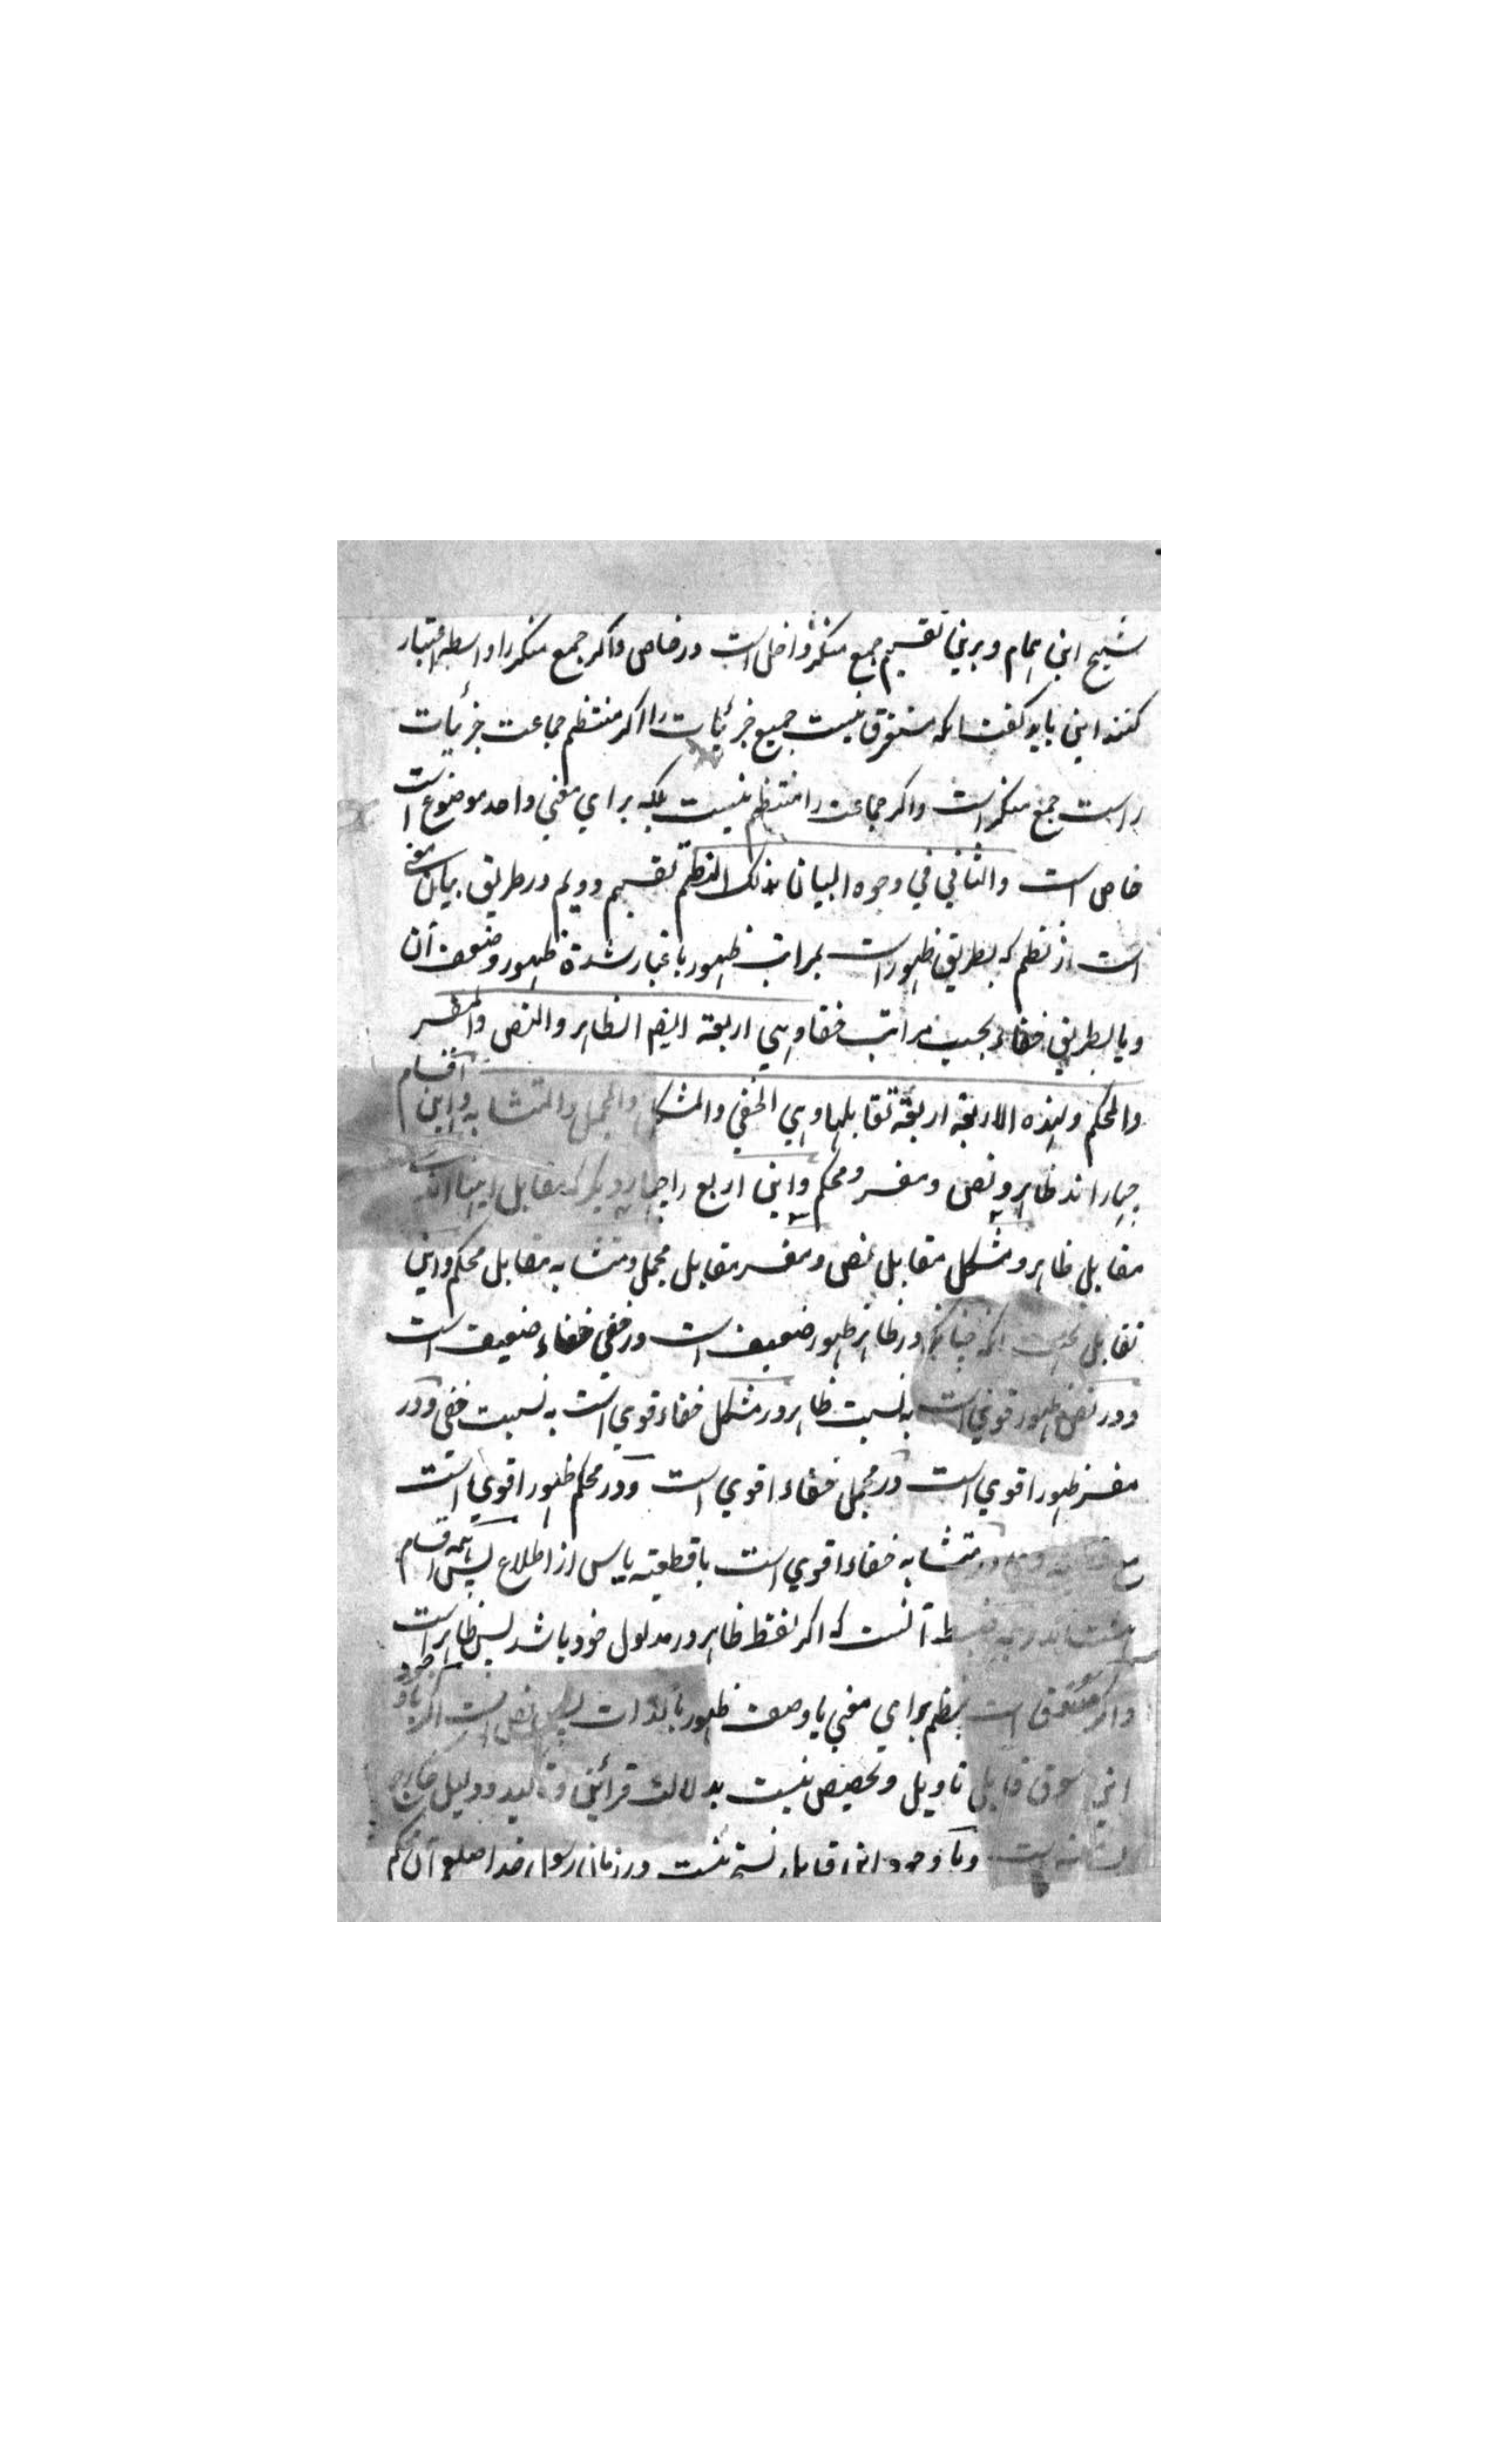 شیخ ابن همام وبرین تقسیم جمع منکر داخل است در خاص واکر جمع منکر را واسطه اعتبار
کنند این باید کفت انکه مستغرق نیست جمیع جزئیات را اکر منتظم جماعت جزئیات
راست جمع منکر است واکر جماعت را منتظم نیست بلکه برای معنی واحد موضوع است
خاص است والثانی فی وجوه البیان بذلک النظم تقسیم دویم در طریق بیان معنی
است از نظم که بطریق ظهور است بمراتب ظهور باعتبار شدة ظهور وضعف آن
ویا بطریق خفاء بحسب مراتب خفا وهی اربعة ایضا الظاهر والنص والمفسر
والمحکم ولهذه الاربعة اربعة تقابلها وهی الخفی والمشکل والمجمل والمتشابه واین اقسام
چهاراند ظاهر ونص ومفسر ومحکم واین اربع را چهار دیکر که مقابل اینها اند
مقابل ظاهر ومشکل مقابل نص ومفسر مقابل مجمل ومتشابه مقابل محکم واین
تقابل انکه چنانکه در ظاهر ظهور ضعیف است در خفی خفاء ضعیف است
ودر نص ظهور قوی است به نسبت ظاهر در مشکل خفاء قوی است به نسبت خفی ودر
مفسر ظهور اقوی است در مجمل خفاء اقوی است ودر محکم ظهور اقوی است
در متشابه خفاء اقوی است باقطعیة یاس از اطلاع پس همه اقسام
هشت اند وجه ضبط آنست که اکر لفظ ظاهر در مدلول خود باشد پس ظاهر است
واکر است نظم برای معنی با وصف ظهور بالذات پس نص است اکر باوجود
این سوق قابل تاویل وتخصیص نیست بدلالت قرائن ودلیل خارج
وباوجود این قابل نسخ نیست در زمان رسول خدا صلعم آن محکم